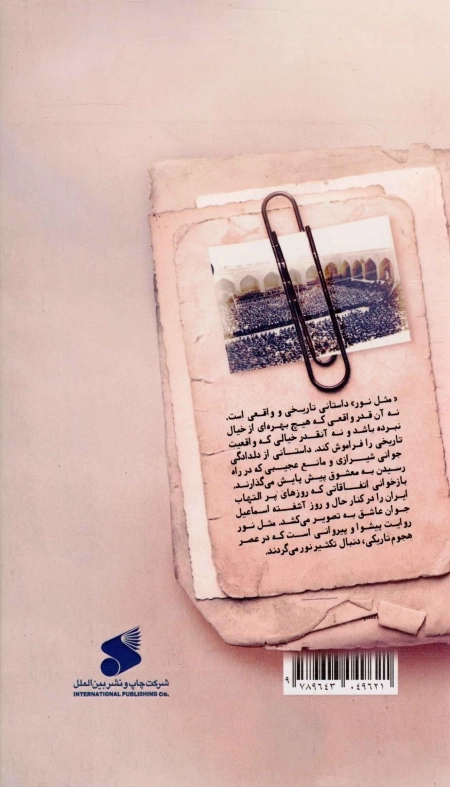 «مثل نور» داستانی تاریخی و واقعی است.
نه آن قدر واقعی که هیچ بهره‌ای از خیال
نبرده باشد و نه آنقدر خیالی که واقعیت
تاریخی را فراموش کند. داستانی از دلدادگی
جوانی شیرازی و مانع عجیبی که در راه
رسیدن به معشوق پیش پایش می‌گذارند.
بازخوانی اتفاقاتی که روزهای پر التهاب
ایران را در کنار حال و روز آشفته اسماعیل
جوان عاشق به تصویر می‌کشد. مثل نور
روایت پیشوا و پیروانی است که در عصر
هجوم تاریکی، دنبال تکثیر نور می‌گردند.
شرکت چاپ و نشر بین‌الملل
INTERNATIONAL PUBLISHING Co.
9 789643 049621